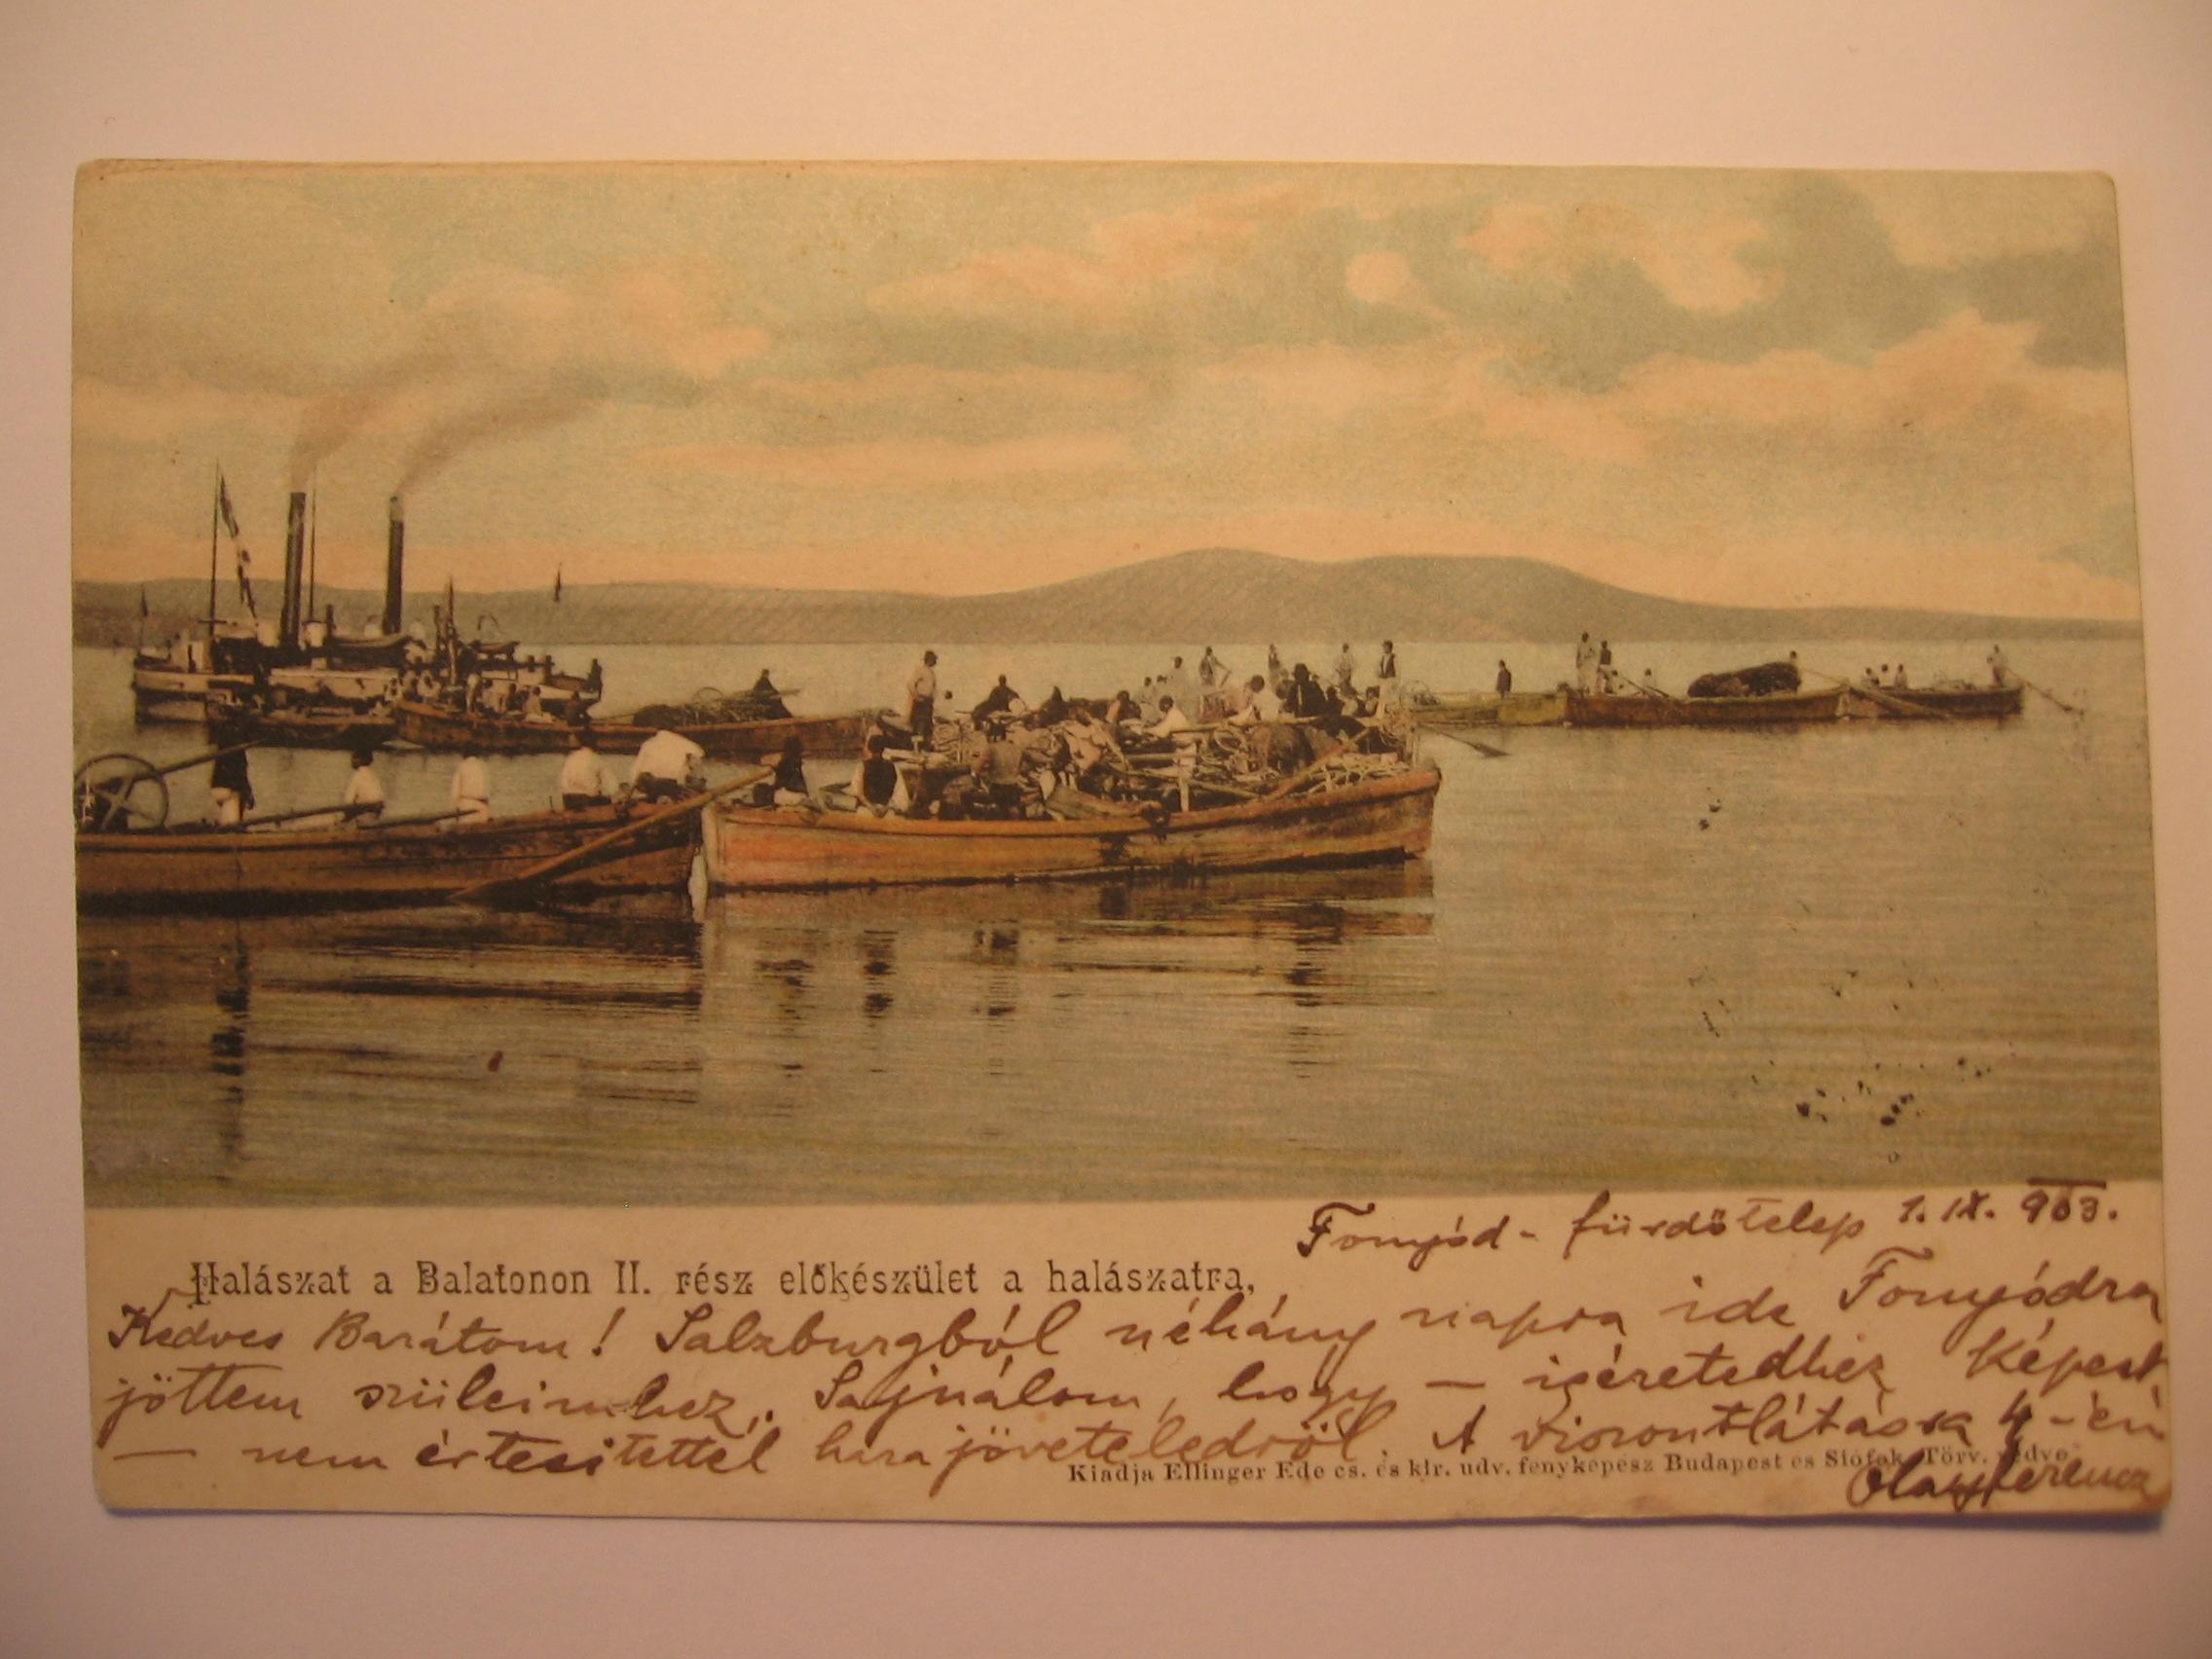 Fonyód - fürdőtelep 1. IX. 903.
Halászat a Balatonon II. rész előkészület a halászatra,
Kedves Barátom! Salzburgból néhány napra ide Fonyódra
jöttem szüleimhez. Sajnálom, hogy — igéretedhez képest
— nem értesitettél hazajöveteledről. A viszontlátásra 4-én
Kiadja Ellinger Ede cs. és kir. udv. fényképész Budapest és Siófok. Törv. védve
Olay Ferencz